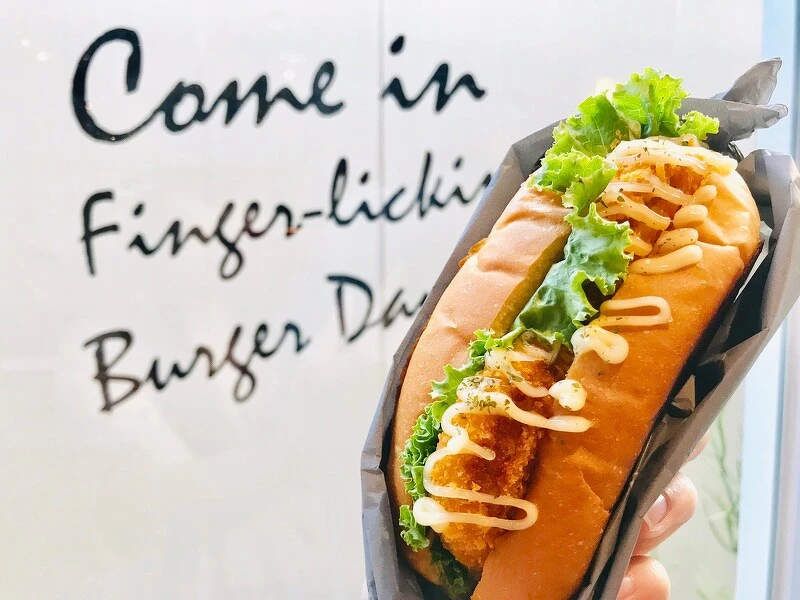 Come in
Finger-licki
Burger Da